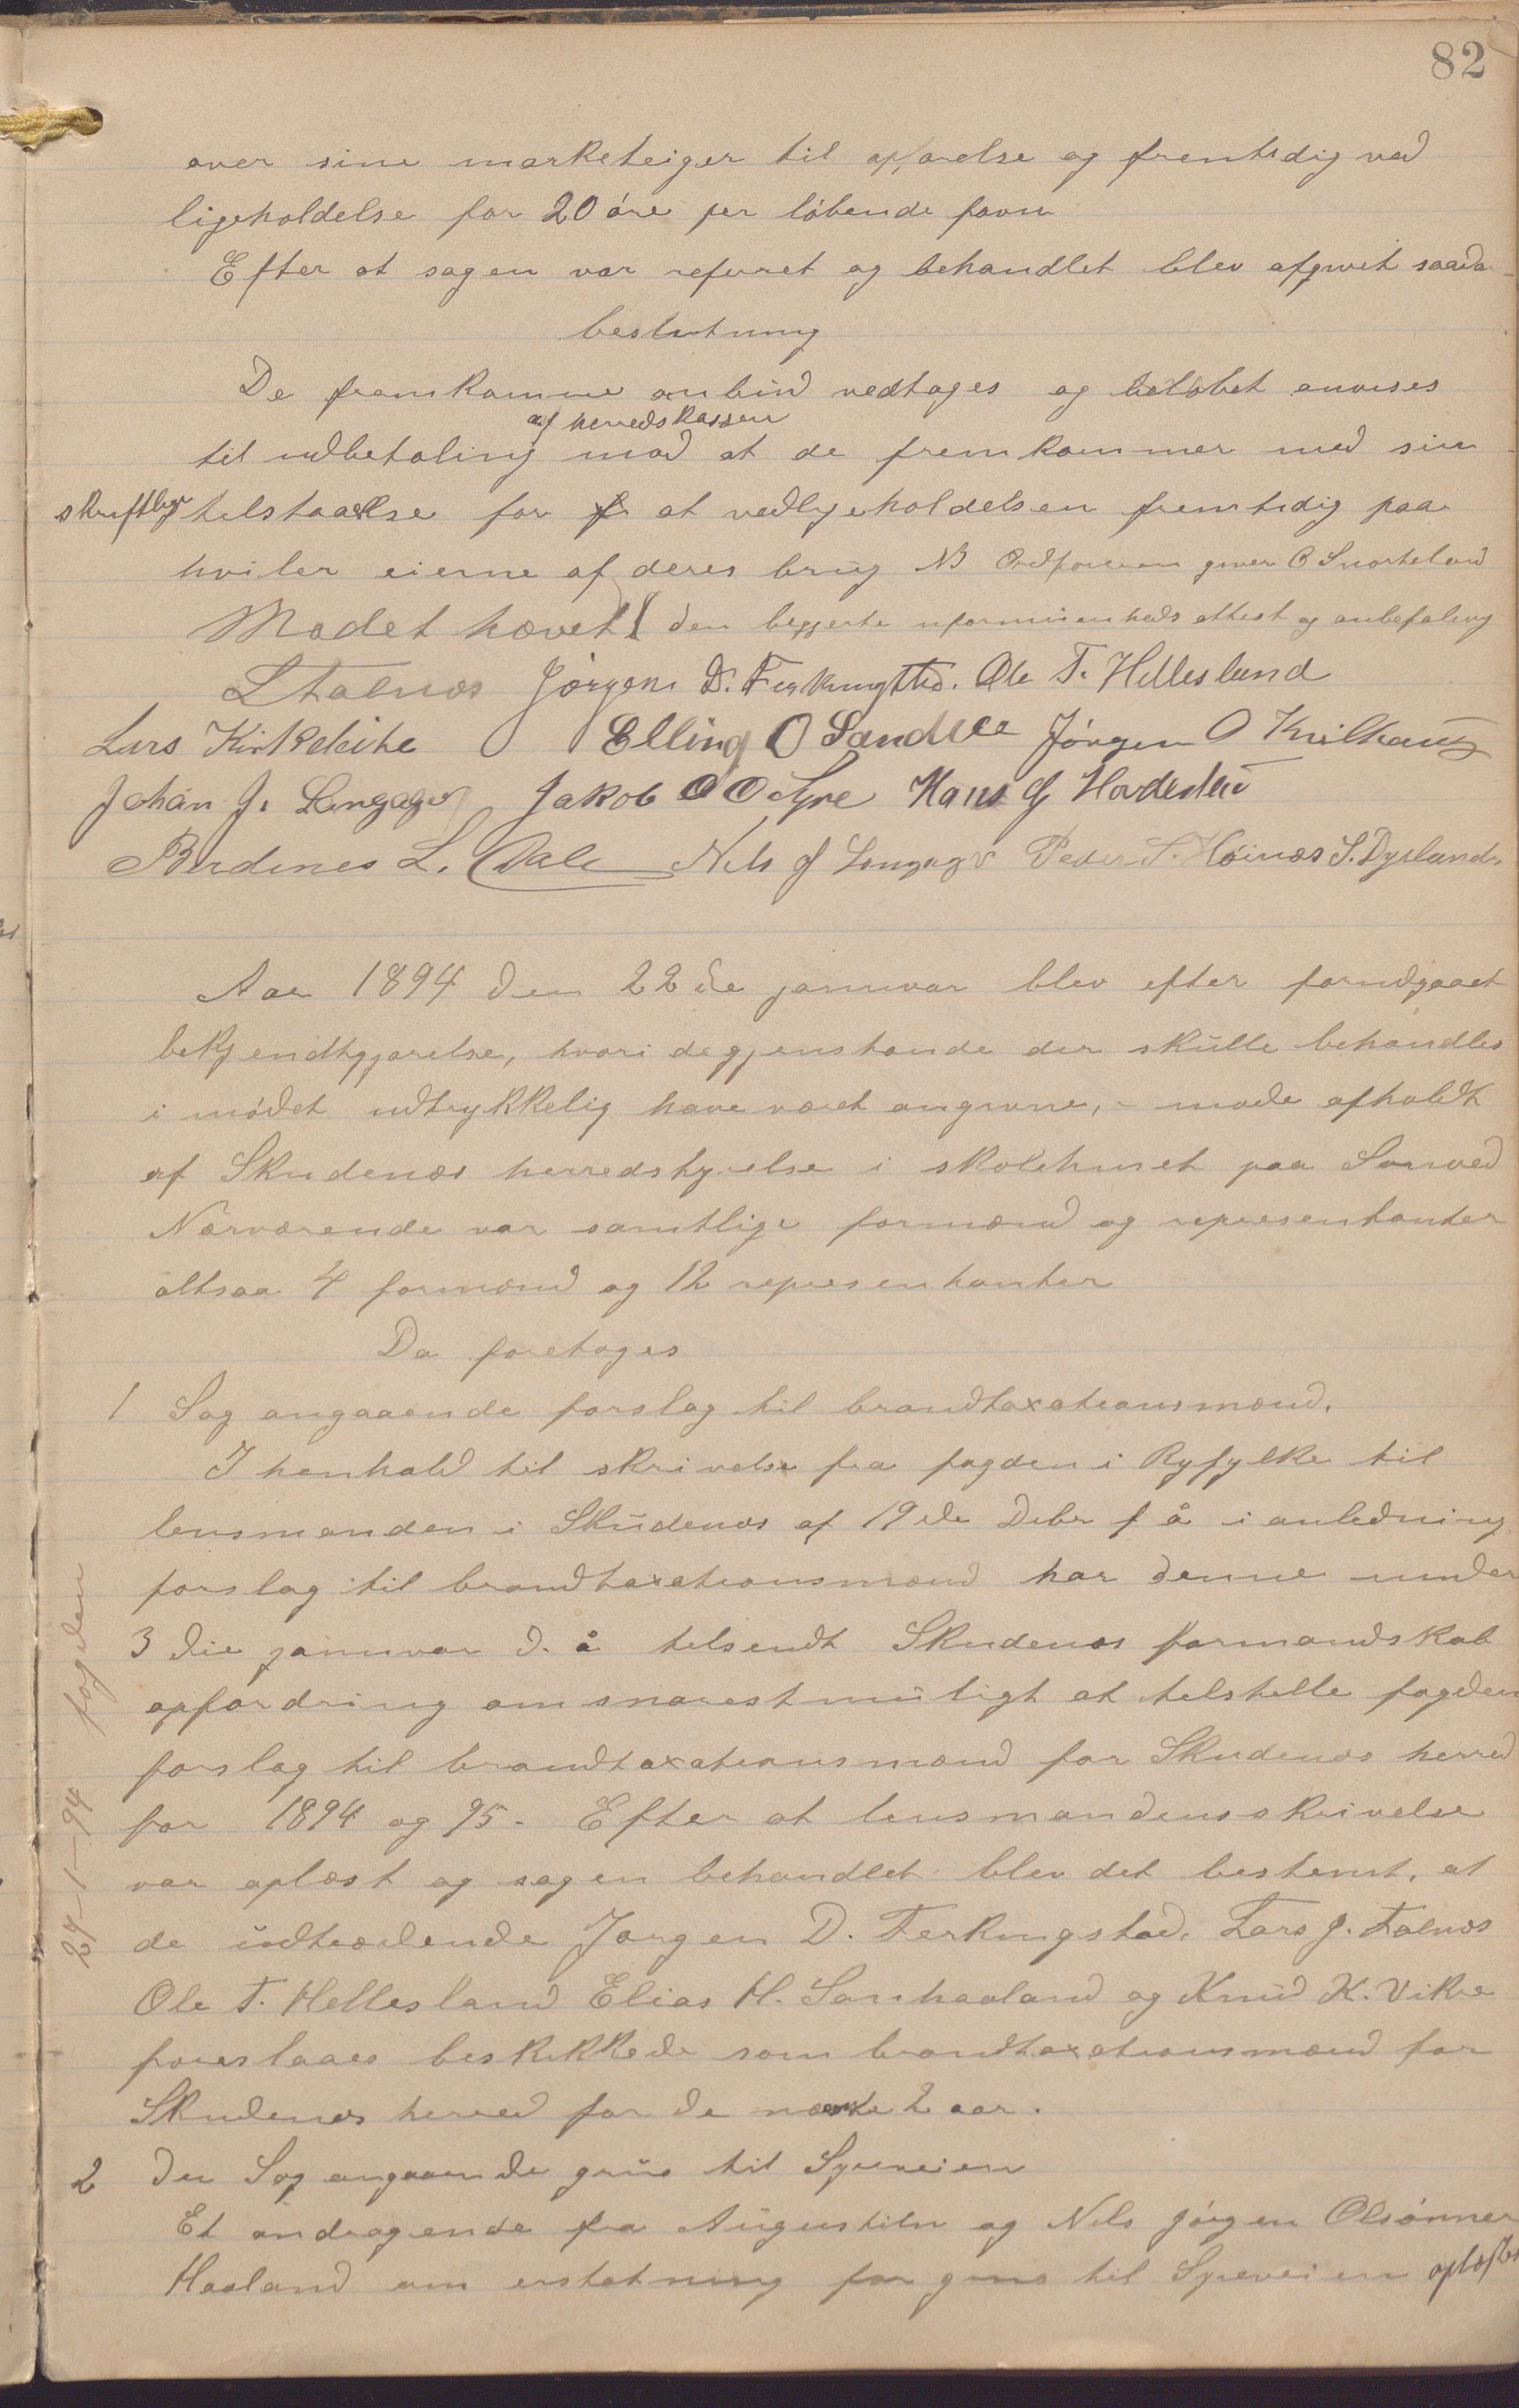 82
over sine marketeiger til opførelse og fremtidig ved
ligeholdelse for 20 øre per løbende favn
Efter at sagen var referet og behandlet blev afgivet saada
beslutning
De fremkomne anbud vedtages og beløbet anvises
af heredskassen
til udbetaling mod at de fremkommer med sin
skriftlige tilstaaelse for at vedligeholdelsen fremtidig paa
hviler eierne af deres brug NB Ordføreren giver O Snorteland
Mødet hævet den begjerte uformuenheds attest og anbefaling
L Falnes Jørgen D. Ferkingstad. Ole T. Hellesland
Lars Kirkeleite Elling O Sandvee Jørgen O Kvilhaug
Johan J. Langager Jakob O O Syre Hans J Hovdesten
Berdines L. Dale Nils J Langager Peder S. Høines S. Dyrland
Aar 1894 den 22de januar blev efter forudgaaet
bekjendtgjørelse, hvori de gjenstande der skulle behandles
i mødet udtrykkelig have været angivne, - møde afholdt
af Skudenes herredstyrelse i skolehuset paa Sørved
Nærværende var samtlige formænd og representanter
altsaa 4 formænd og 12 representanter
Da foretages
1 Sag angaaende forslag til brandtaxationsmænd.
I henhold til skrivelse fra fogden i Ryfylke til
lensmanden i Skudenes af 19de Debr f å i anledning
forslag til brandtaxationsmænd har denne under
3die januar d. å tilsendt Skudenes formandskab
opfordring om snarest muligt at tilstille fogden
forslag til brandtaxationsmænd for Skudenes herred
for 1894 og 95. Efter at lensmandens skrivelse
var oplæst og sagen behandlet blev det bestemt, at
de udtrædende Jørgen D. Ferkingstad, Lars J. Falnes
Ole T. Hellesland Elias H. Sørhaaland og Knud K. Vikre
foreslaaes beskikkede som brandtaxationsmænd for
Skudenes herred for de næste 2 aar.
27-1-94 fogden
2 den Sag angaaende grus til Syreveien
Et andragende fra Augustin og Nils Jørgen Olsønner
Haaland om erstatning for grus til Syreveien oplæstes